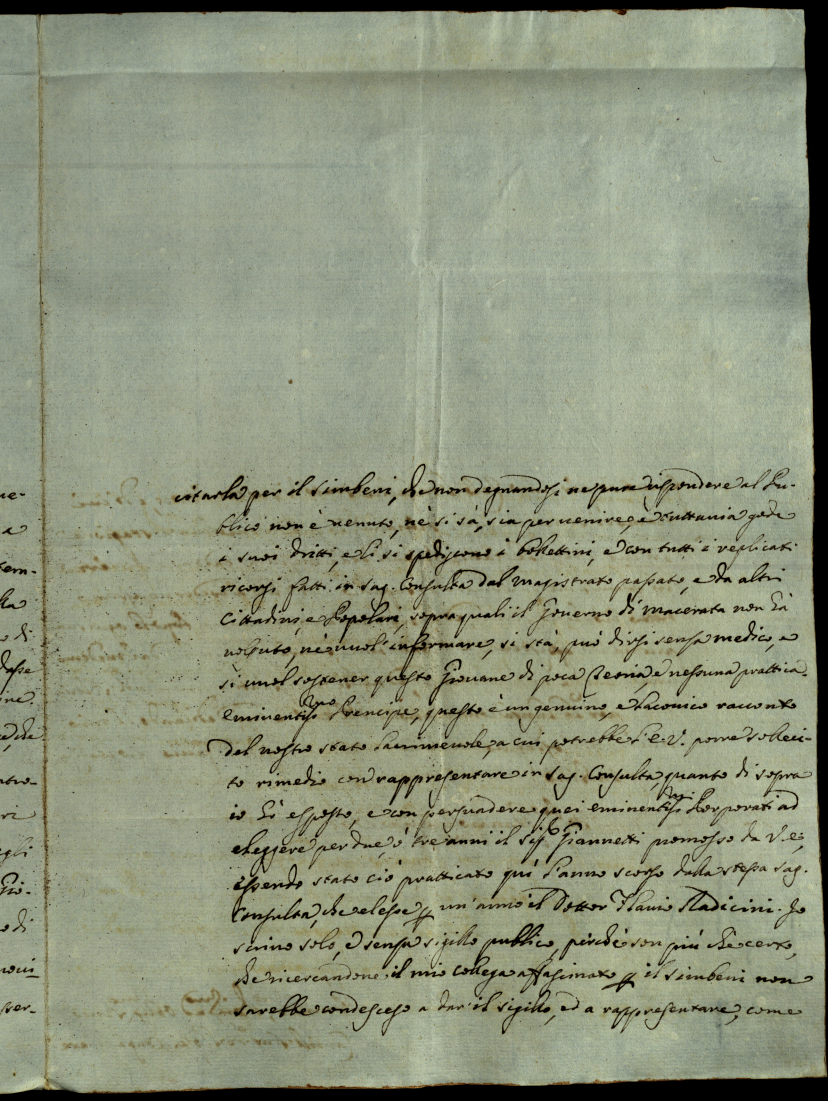 citarla per il Simbeni, che non degnandosi ne pure rispondere al Pu-
blico non è venuto, nè si sà, sia per venire, e tuttavia gode
i suoi dritti, e li si spediscono i bollettini, e con tutti i replicati
ricorsi fatti in Sag. Consulta dal Magistrato passato, e da altri
Cittadini, e Popolari, sopra quali il Governo di Macerata non hà
voluto, nè vuol' informare, si stà, può dirsi senza medico, e
si vuol sostener questo Giovane di poca Teoria, e nessuna prattica.
Eminentissmo Prencipe, questo è un genuino, e laconico racconto
del nostro stato lacrimevole, a cui potrebbe l'E.V. porre solleci-
to rimedio con rappresentare in Sag. Consulta, quanto di sopra
io hò esposto, e con persuadere quei Eminentissmi Porporati ad
eleggere per due, ò tre anni il Sigr Giannetti promosso da V.E.,
essendo stato ciò pratticato quì l'anno scorso dalla stessa Sag.
Consulta, che elesse p un'anno il Dottor Flavio Radicini. Io
scrivo solo, e senza sigillo publico, perchè son più che certo,
che ricercandone il mio collega affascinato p il Simbeni non
sarebbe condesceso a dar' il sigillo, ed a rappresentare, come
ue-
a
tem-
lla
o di
dasse
ne
e, che
ri
gli
Gio-
o di
ser-